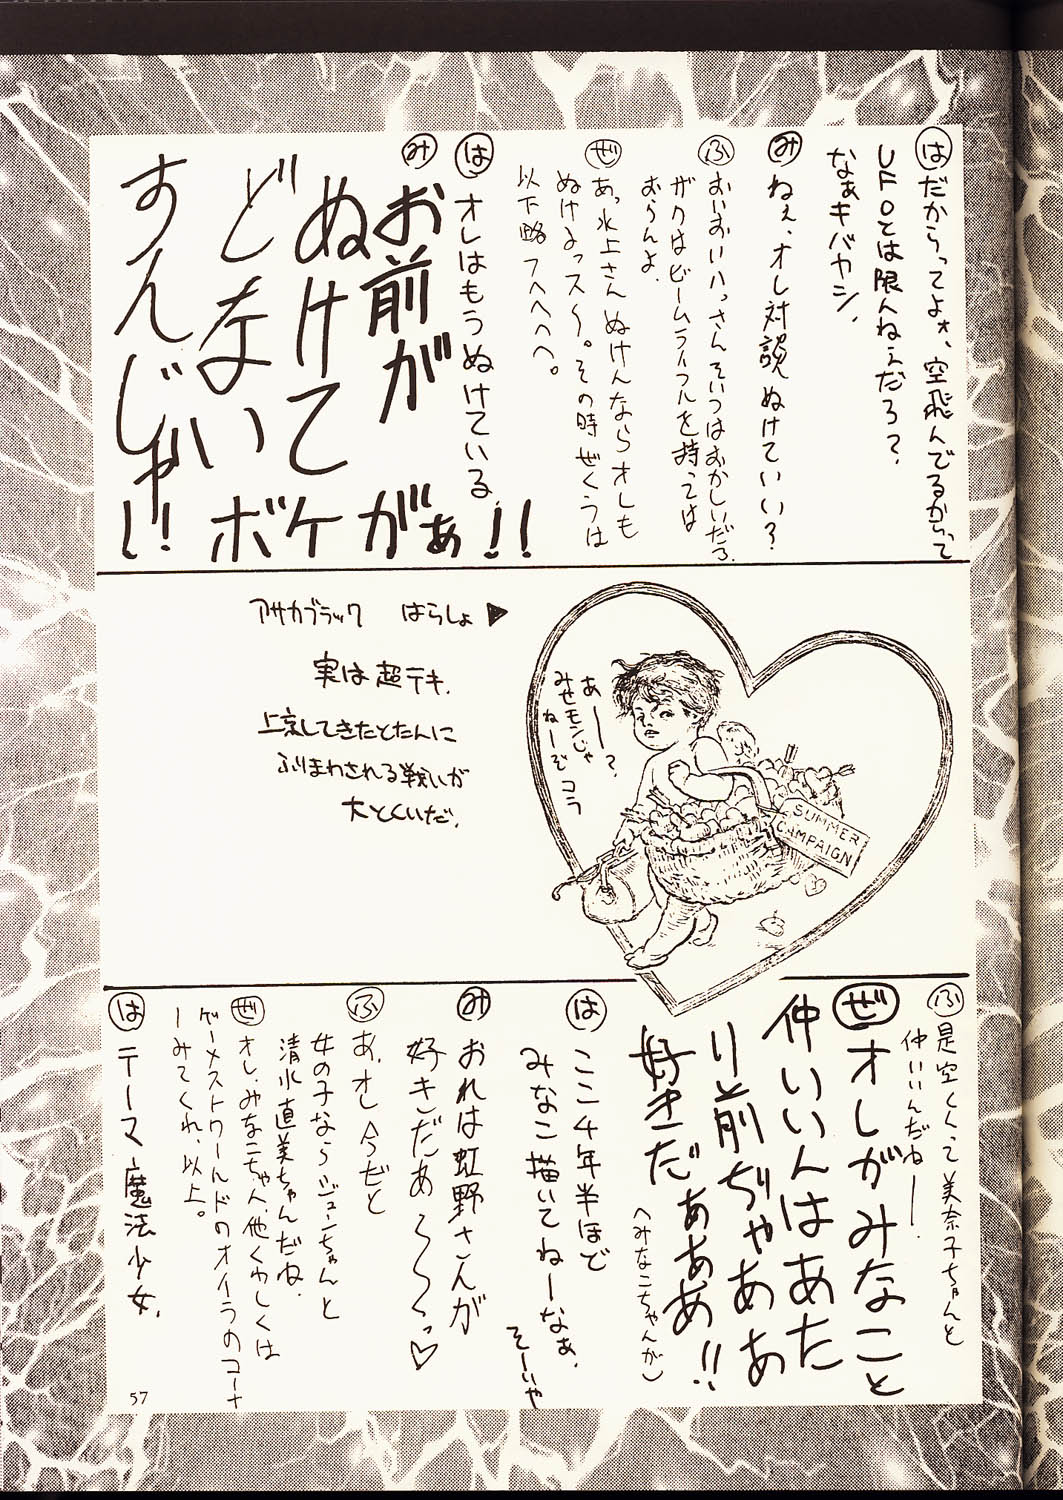 は だからってよォ、空飛んでるからって
UFOとは限んねェだろ?
なぁキバヤシ、
み ねぇ、オレ対談ぬけていい?
ふ おいおいハっさんそいつはおかしいだろ、
ザクはビームライフルを持っては
おらんよ。
ぜ あっ水上さんぬけんならオレも
ぬけるっス〜。その時ぜくうは
以下略フヘヘヘヘ。
は オレはもうぬけている、
み お前が
ぬけて
どない
すんじゃ
い! ボケがぁ!!
アサカブラック はらしょ ▶
実は超テキ、
上京してきたとたんに
ふりまわされる戦いが
大とくいだ、
あー?
みせモンじゃ
ねーぞコラ
SUMMER
CAMPAIGN
ふ 是空くんって美奈子ちゃんと
仲いいんだねー。
ぜ オレがみなこと
仲いいんはあた
り前ぢゃああ
好きだぁああ!!
(みなこちゃんが)
は ここ4年半ほど
みなこ描いてねーなぁ、
そーいや
み おれは虹野さんが
好きだあ〜〜っ♡
ふ あ、オレ今だと
女の子ならジューンちゃんと
清水直美ちゃんだね、
ぜ オレ、みなこちゃん、他くゎしくは
ゲーメストワールドのオイラのコーナ
ーみてくれ、以上。
は テーマ魔法少女、
57